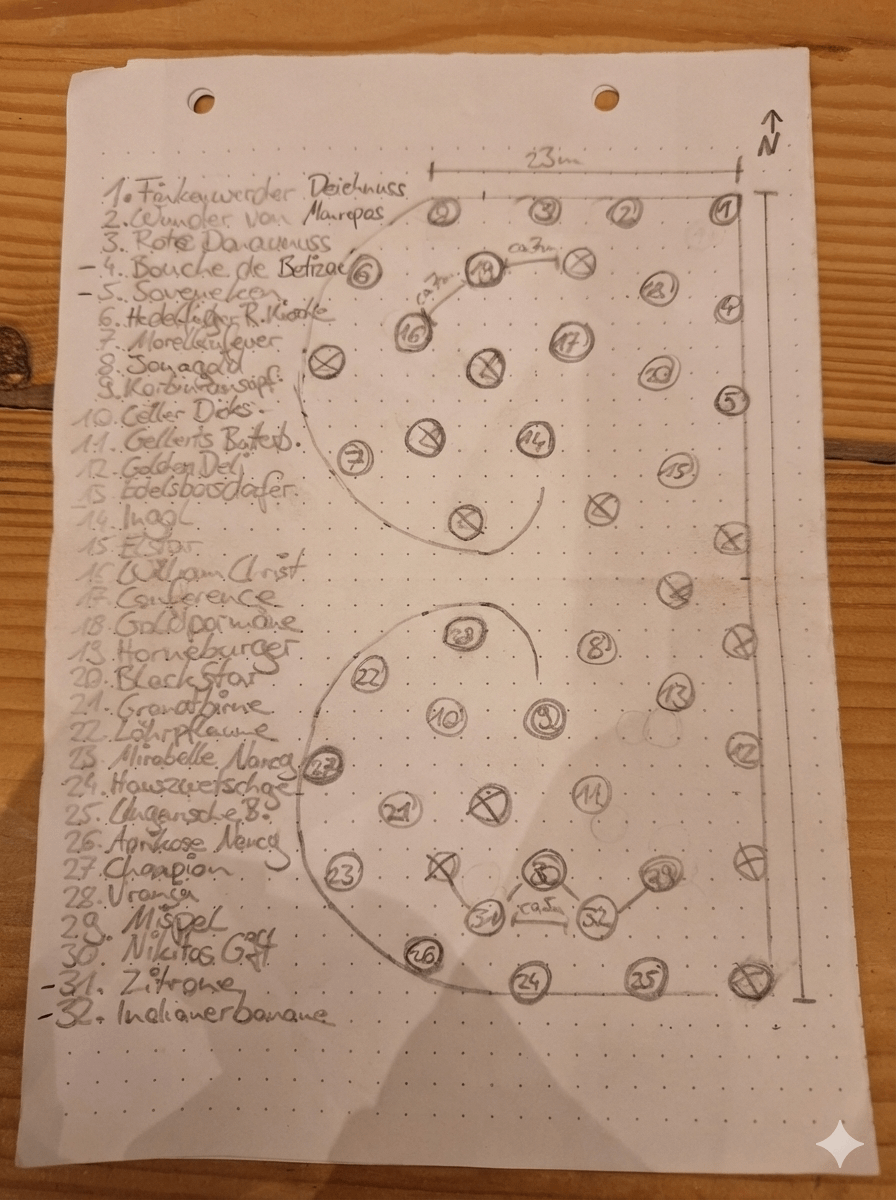 N
23m
1. Finkenwerder Deichnuss
2. Wunder von Maurepas
3. Rote Donaunuss
- 4. Bouche de Betizac
- 5.
6. Hedelfinger R. Kirsche
7. Morellenfeuer
8. Jonagold
9.
10. Celler Dicks.
11. Gellerts Butterb.
12. Golden Deli
13. Edelsborsdorfer.
14. Ingol
15. Elstar
16. William Christ
17. Conference
18. Goldparmäne
19. Horneburger
20. Black Star
21. Granatbirne
22. Löhrpflaume
23. Mirabelle Nancy
24. Hauszwetschge
25. Ungarische B.
26. Aprikose Nancy
27. Champion
28. Vranja
29. Mispel
30. Nikitas Gift
- 31. Zitrone
- 32. Indianerbanane
3 2 1
6 19 ca 7m 18
ca 7m
16 17 4
20 5
7 14 15
28 8
22 13
10 9
27 12
21 11
23 30 29
31 ca 5m 32
26 24 25